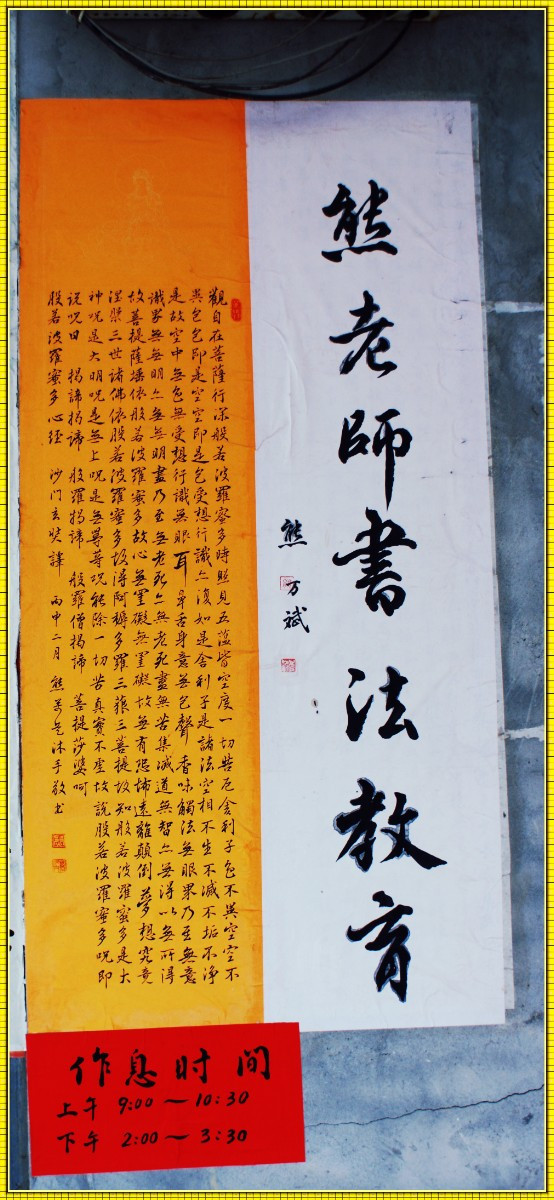 熊老師書法教育
熊万斌
觀自在菩薩行深般若波羅蜜多時照見五蕴皆空度一切苦厄舍利子色不異空空不
異色色即是空空即是色受想行識亦復如是舍利子是諸法空相不生不滅不垢不净
是故空中無色無受想行識無眼耳鼻舌身意無色聲香味觸法無眼界乃至無意
識界無無明亦無無明盡乃至無老死亦無老死盡無苦集滅道無智亦無得以無所得
故菩提薩埵依般若波羅蜜多故心無罣礙無罣礙故無有恐怖遠離顛倒夢想究竟
涅槃三世諸佛依般若波羅蜜多故得阿耨多羅三藐三菩提故知般若波羅蜜多是大
神呪是大明呪是無上呪是無等等呪能除一切苦真實不虛故說般若波羅蜜多呪即
說呪曰 揭諦揭諦 般羅揭諦 般羅僧揭諦 菩提莎婆呵
般若波羅蜜多心經 沙门玄奘譯 丙申二月 熊 沐手敬书
作息时间
上午 9:00～10:30
下午 2:00～3:30